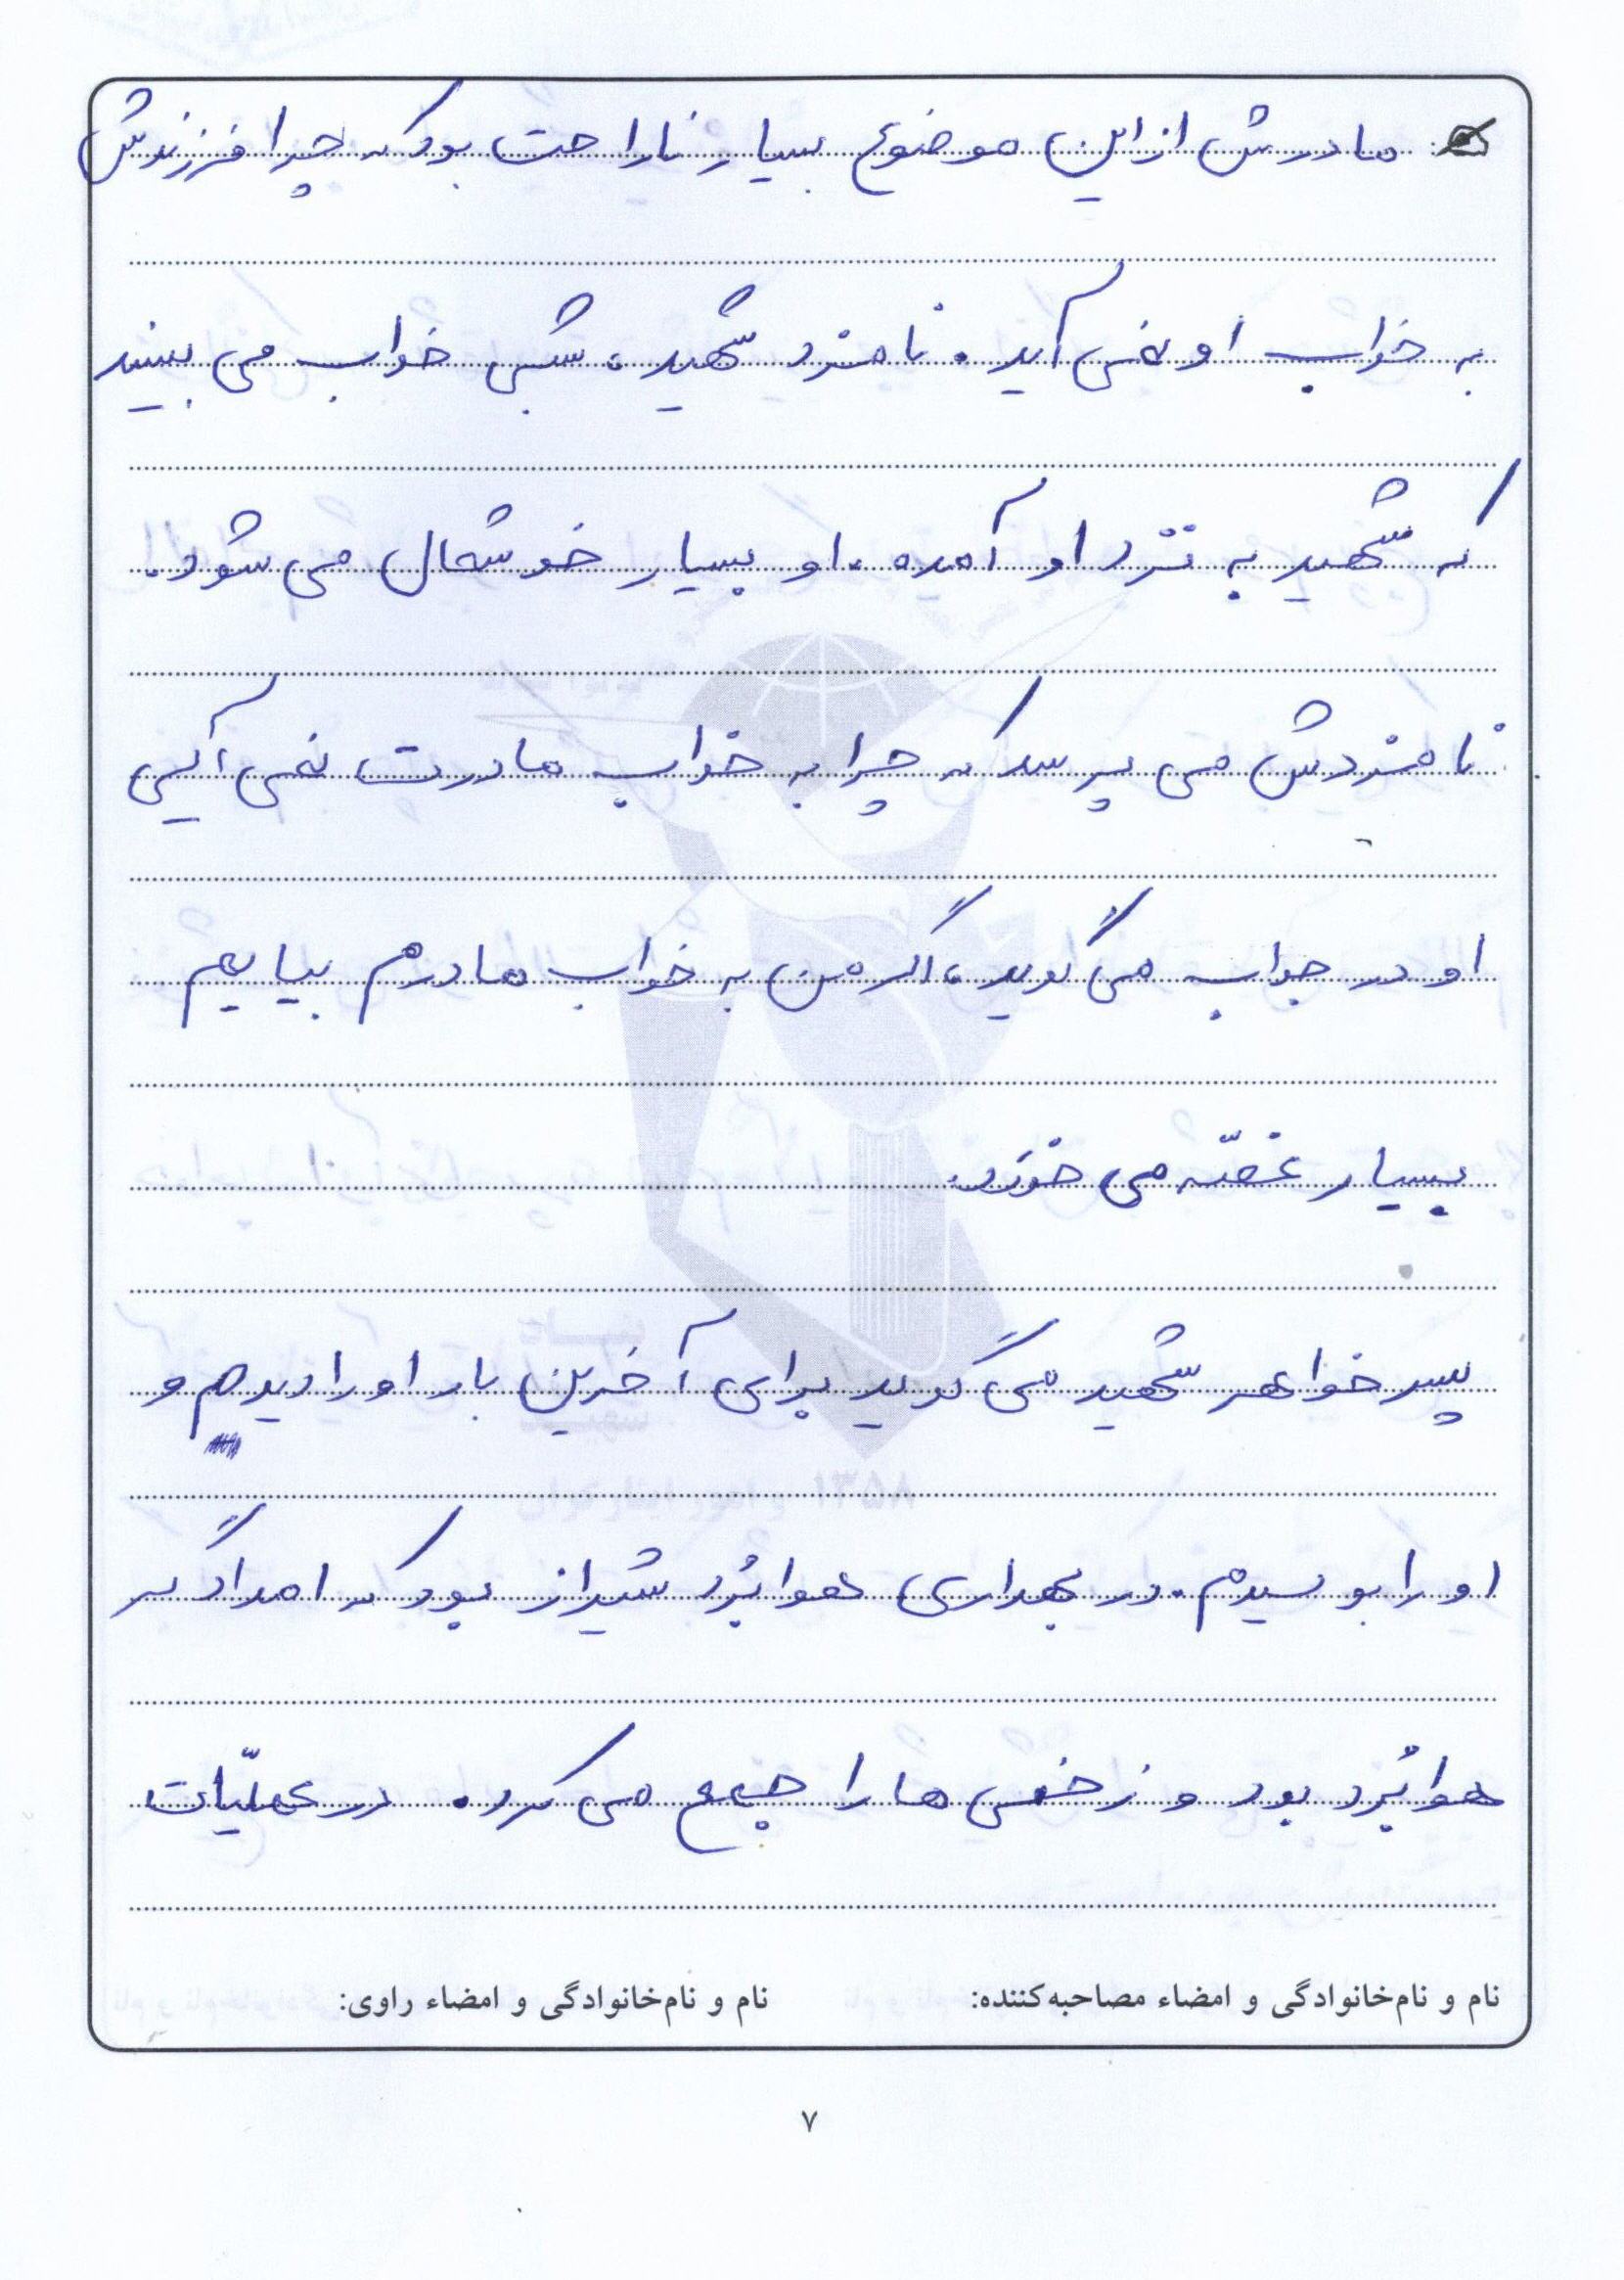 مادرش از این موضوع بسیار ناراحت بود که چرا فرزندش
به خواب او نمی آید. نامزد شهید، شبی خواب می بیند
که شهید به نزد او آمده. او بسیار خوشحال می شود.
نامزدش می پرسد که چرا به خواب مادرت نمی آیی
او در جواب می گوید، اگر من به خواب مادرم بیایم
بسیار غصّه می خورد.
پسر خواهر شهید می گوید برای آخرین بار او را دیدم و
او را بوسیدم. در بهداری هوابُرد شیراز بود که امدادگر
هوابُرد بود و زخمی ها را جمع می کرد. در عملیّات
نام و نام‌خانوادگی و امضاء مصاحبه‌کننده: نام و نام‌خانوادگی و امضاء راوی:
۷